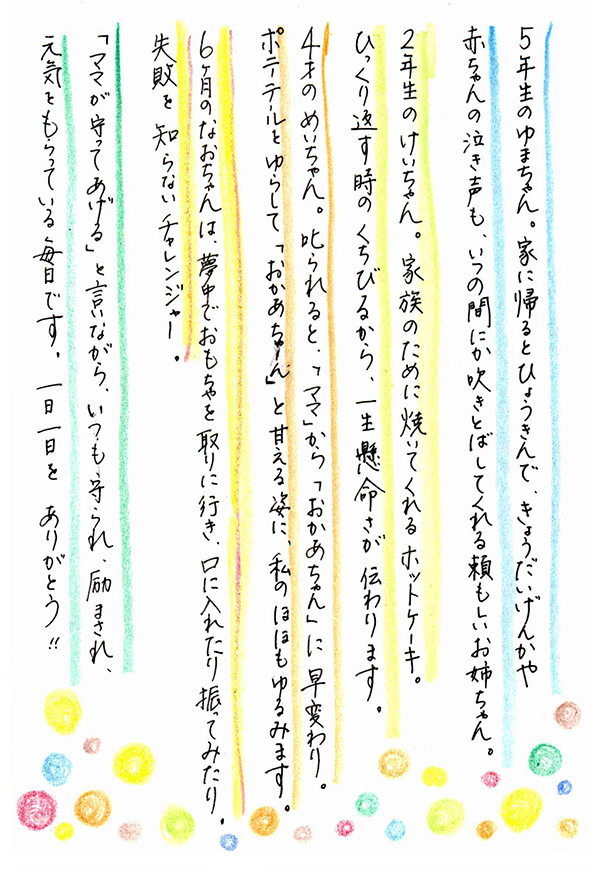 5年生のゆまちゃん。家に帰るとひょうきんで、きょうだいげんかや
赤ちゃんの泣き声も、いつの間にか吹きとばしてくれる頼もしいお姉ちゃん。
2年生のけいちゃん。家族のために焼いてくれるホットケーキ。
ひっくり返す時のくちびるから、一生懸命さが伝わります。
4才のめいちゃん。叱られると、「ママ」から「おかあちゃん」に早変わり。
ポニテールをゆらして「おかあちゃ〜ん」と甘える姿に、私のほほもゆるみます。
6ヶ月のなおちゃんは、夢中でおもちゃを取りに行き、口に入れたり振ってみたり。
失敗を知らないチャレンジャー。
「ママが守ってあげる」と言いながら、いつも守られ、励まされ、
元気をもらっている毎日です。一日一日を ありがとう!!